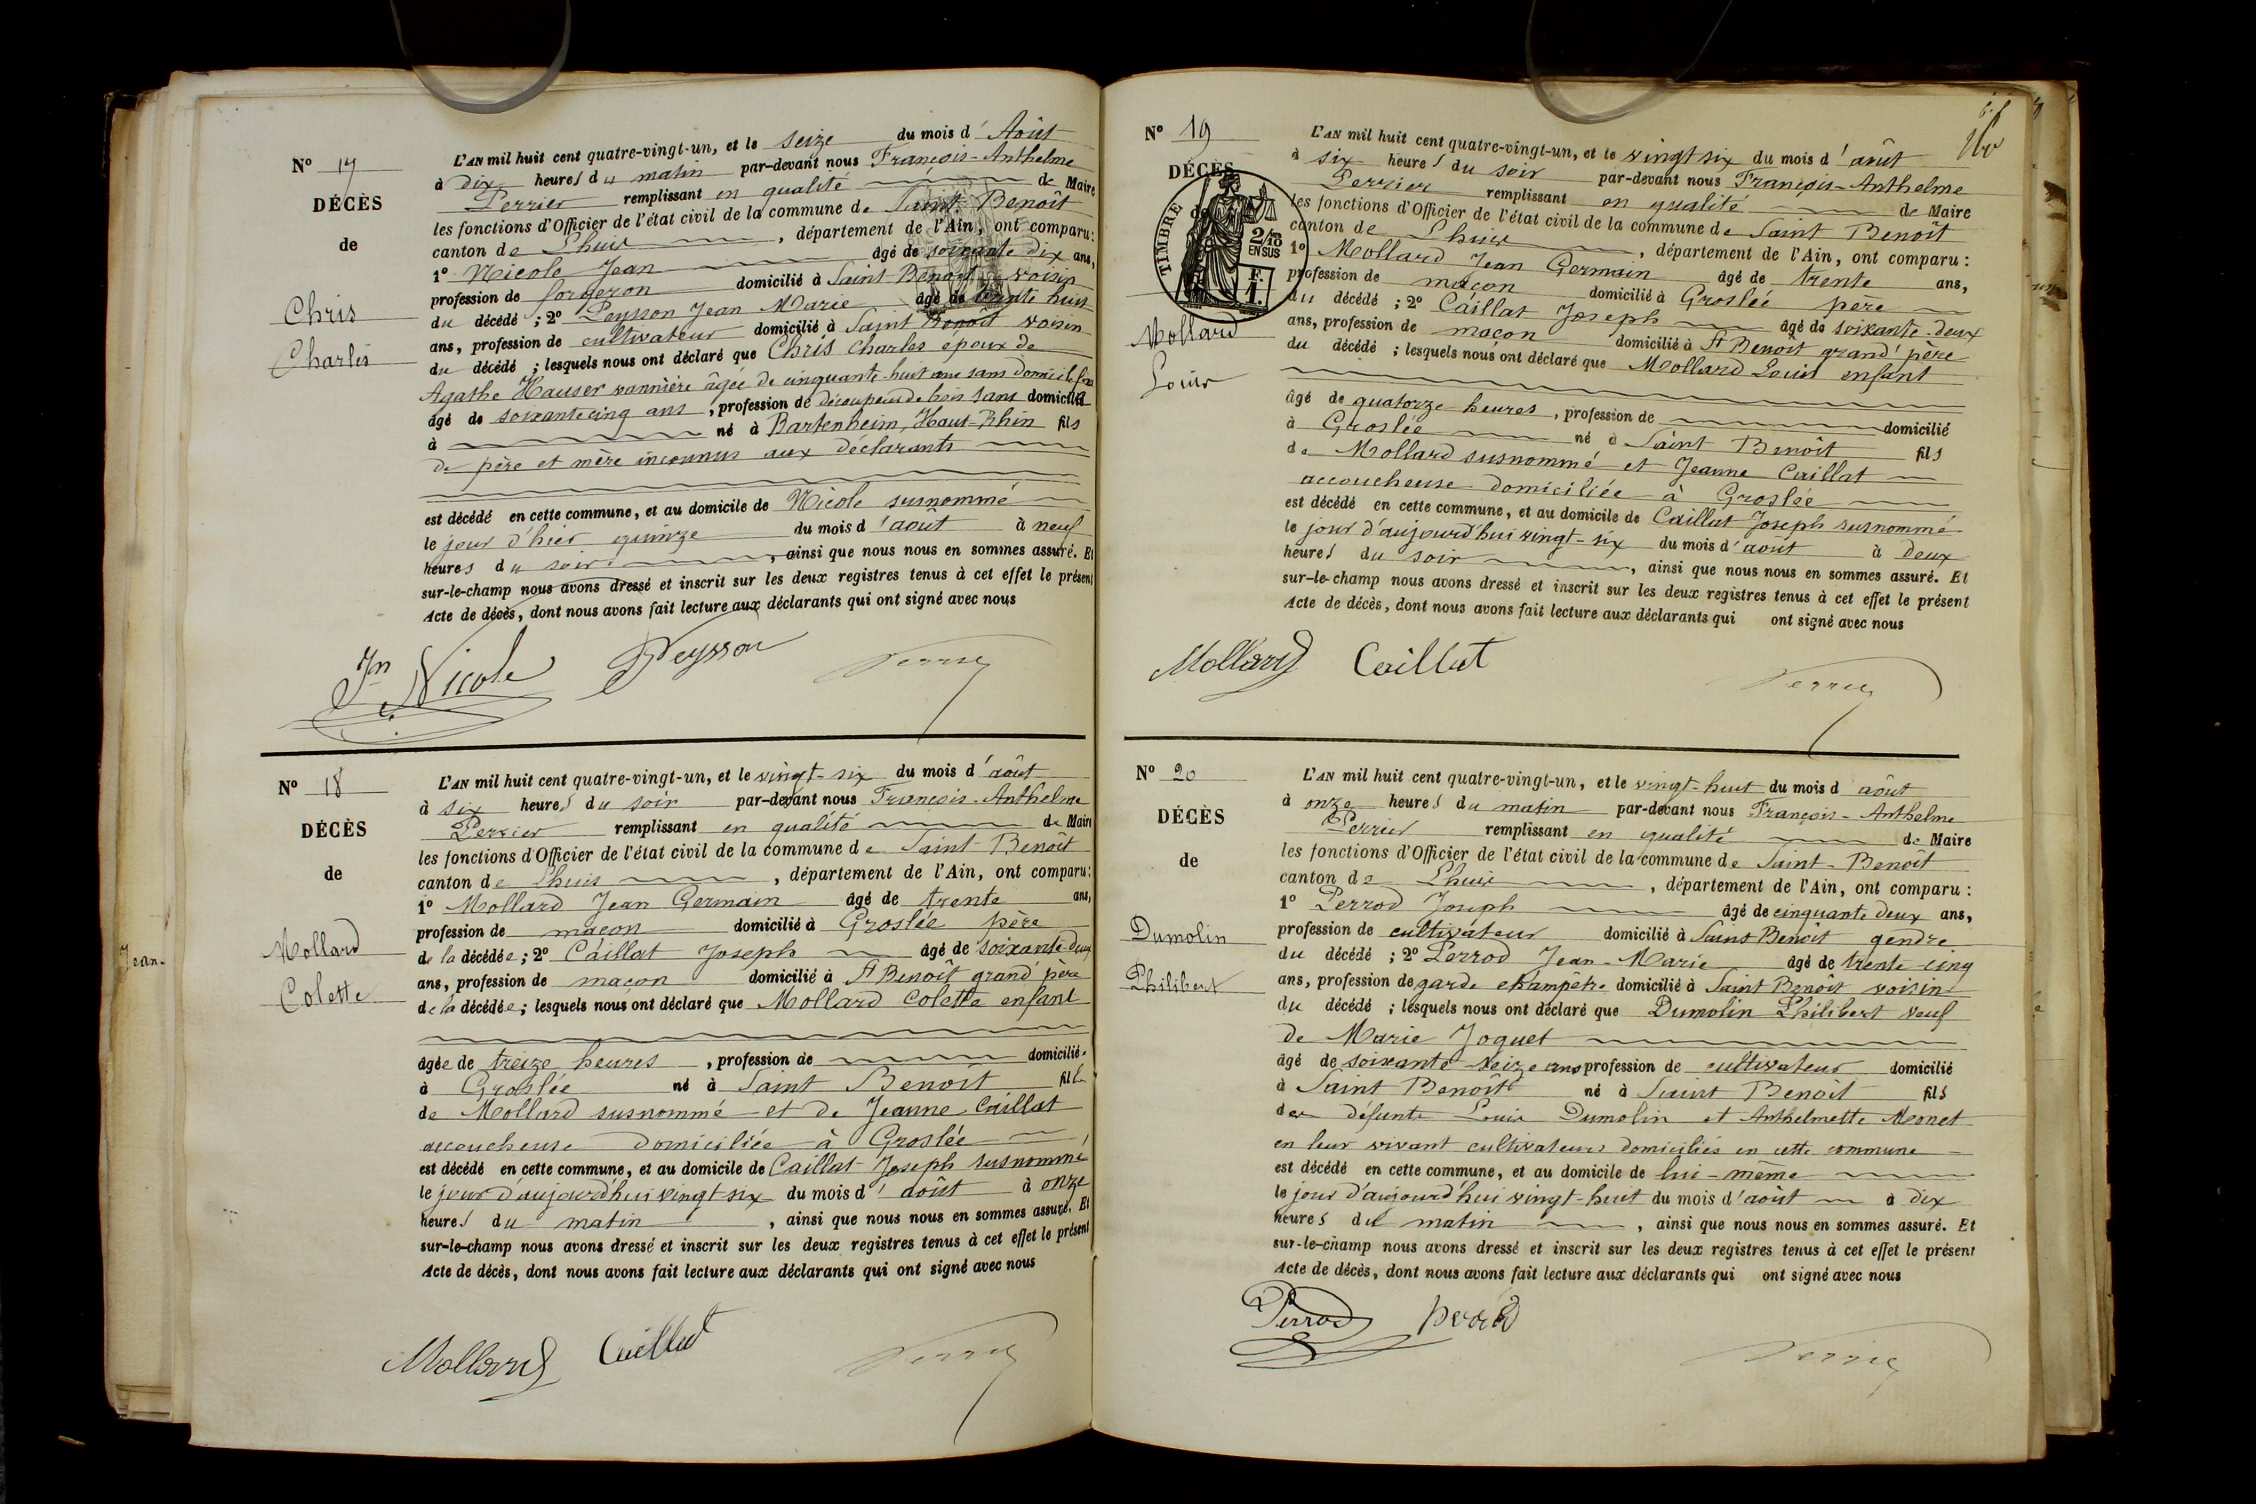 N° 17
DÉCÈS
de
Chris
Charles
L'AN mil huit cent quatre-vingt-un, et le seize du mois d'Août
à dix heures du matin par-devant nous François-Anthelme
Perrier remplissant en qualité de Maire
les fonctions d'Officier de l'état civil de la commune de Saint Benoît
canton de Lhuis, département de l'Ain, ont comparu:
1° Nicole Jean âgé de soixante dix ans,
profession de forgeron domicilié à Saint Benoît voisin
du décédé ; 2° Peysson Jean Marie âgé de trente huit
ans, profession de cultivateur domicilié à Saint Benoît voisin
du décédé ; lesquels nous ont déclaré que Chris Charles époux de
Agathe Hauser vannière âgée de cinquante-huit ans sans domicile fixe
âgé de soixante cinq ans, profession de découpeur de bois sans domicilié
à né à Bartenheim, Haut-Rhin fils
de père et mère inconnus aux déclarants
est décédé en cette commune, et au domicile de Nicole susnommé
le jour d'hier quinze du mois d'août à neuf
heures du soir, ainsi que nous nous en sommes assuré. Et
sur-le-champ nous avons dressé et inscrit sur les deux registres tenus à cet effet le présent
Acte de décès, dont nous avons fait lecture aux déclarants qui ont signé avec nous
Jn Nicole Peysson Perrier
N° 18
DÉCÈS
de
Mollard
Colette
L'AN mil huit cent quatre-vingt-un, et le vingt-six du mois d'août
à six heures du soir par-devant nous François-Anthelme
Perrier remplissant en qualité de Maire
les fonctions d'Officier de l'état civil de la commune de Saint-Benoît
canton de Lhuis, département de l'Ain, ont comparu:
1° Mollard Jean Germain âgé de trente ans,
profession de maçon domicilié à Groslée père
de la décédée ; 2° Caillat Joseph âgé de soixante-deux
ans, profession de maçon domicilié à St Benoît grand'père
de la décédée ; lesquels nous ont déclaré que Mollard Colette enfant
âgée de treize heures, profession de domiciliée
à Groslée né à Saint Benoît fille
de Mollard susnommé et de Jeanne Caillat
accoucheuse domiciliée à Groslée
est décédé en cette commune, et au domicile de Caillat Joseph susnommé
le jour d'aujourd'hui vingt-six du mois d'août à onze
heures du matin, ainsi que nous nous en sommes assuré. Et
sur-le-champ nous avons dressé et inscrit sur les deux registres tenus à cet effet le présent
Acte de décès, dont nous avons fait lecture aux déclarants qui ont signé avec nous
Mollard Caillat Perrier
Jean
N° 19
DÉCÈS
de
TIMBRE
2/10
EN SUS
F.
1.
Mollard
Louis
L'AN mil huit cent quatre-vingt-un, et le vingt six du mois d'août
à six heures du soir par-devant nous François-Anthelme
Perrier remplissant en qualité de Maire
les fonctions d'Officier de l'état civil de la commune de Saint Benoît
canton de Lhuis, département de l'Ain, ont comparu :
1° Mollard Jean Germain âgé de trente ans,
profession de maçon domicilié à Groslée père
du décédé ; 2° Caillat Joseph âgé de soixante-deux
ans, profession de maçon domicilié à St Benoît grand'père
du décédé ; lesquels nous ont déclaré que Mollard Louis enfant
âgé de quatorze heures, profession de domicilié
à Groslée né à Saint Benoît fils
de Mollard susnommé et Jeanne Caillat
accoucheuse domiciliée à Groslée
est décédé en cette commune, et au domicile de Caillat Joseph susnommé
le jour d'aujourd'hui vingt-six du mois d'août à deux
heures du soir, ainsi que nous nous en sommes assuré. Et
sur-le-champ nous avons dressé et inscrit sur les deux registres tenus à cet effet le présent
Acte de décès, dont nous avons fait lecture aux déclarants qui ont signé avec nous
Mollard Caillat Perrier
N° 20
DÉCÈS
de
Dumolin
Philibert
L'AN mil huit cent quatre-vingt-un, et le vingt-huit du mois d'août
à onze heures du matin par-devant nous François-Anthelme
Perrier remplissant en qualité de Maire
les fonctions d'Officier de l'état civil de la commune de Saint-Benoît
canton de Lhuis, département de l'Ain, ont comparu :
1° Perrod Joseph âgé de cinquante deux ans,
profession de cultivateur domicilié à Saint Benoît gendre
du décédé ; 2° Perrod Jean-Marie âgé de trente cinq
ans, profession de garde champêtre domicilié à Saint Benoît voisin
du décédé ; lesquels nous ont déclaré que Dumolin Philibert veuf
de Marie Joquet
âgé de soixante-seize ans profession de cultivateur domicilié
à Saint Benoît né à Saint Benoît fils
des défunts Louis Dumolin et Anthelmette Monet
en leur vivant cultivateurs domiciliés en cette commune
est décédé en cette commune, et au domicile de lui-même
le jour d'aujourd'hui vingt-huit du mois d'août à dix
heures du matin, ainsi que nous nous en sommes assuré. Et
sur-le-champ nous avons dressé et inscrit sur les deux registres tenus à cet effet le présent
Acte de décès, dont nous avons fait lecture aux déclarants qui ont signé avec nous
Perrod Perrod Perrier